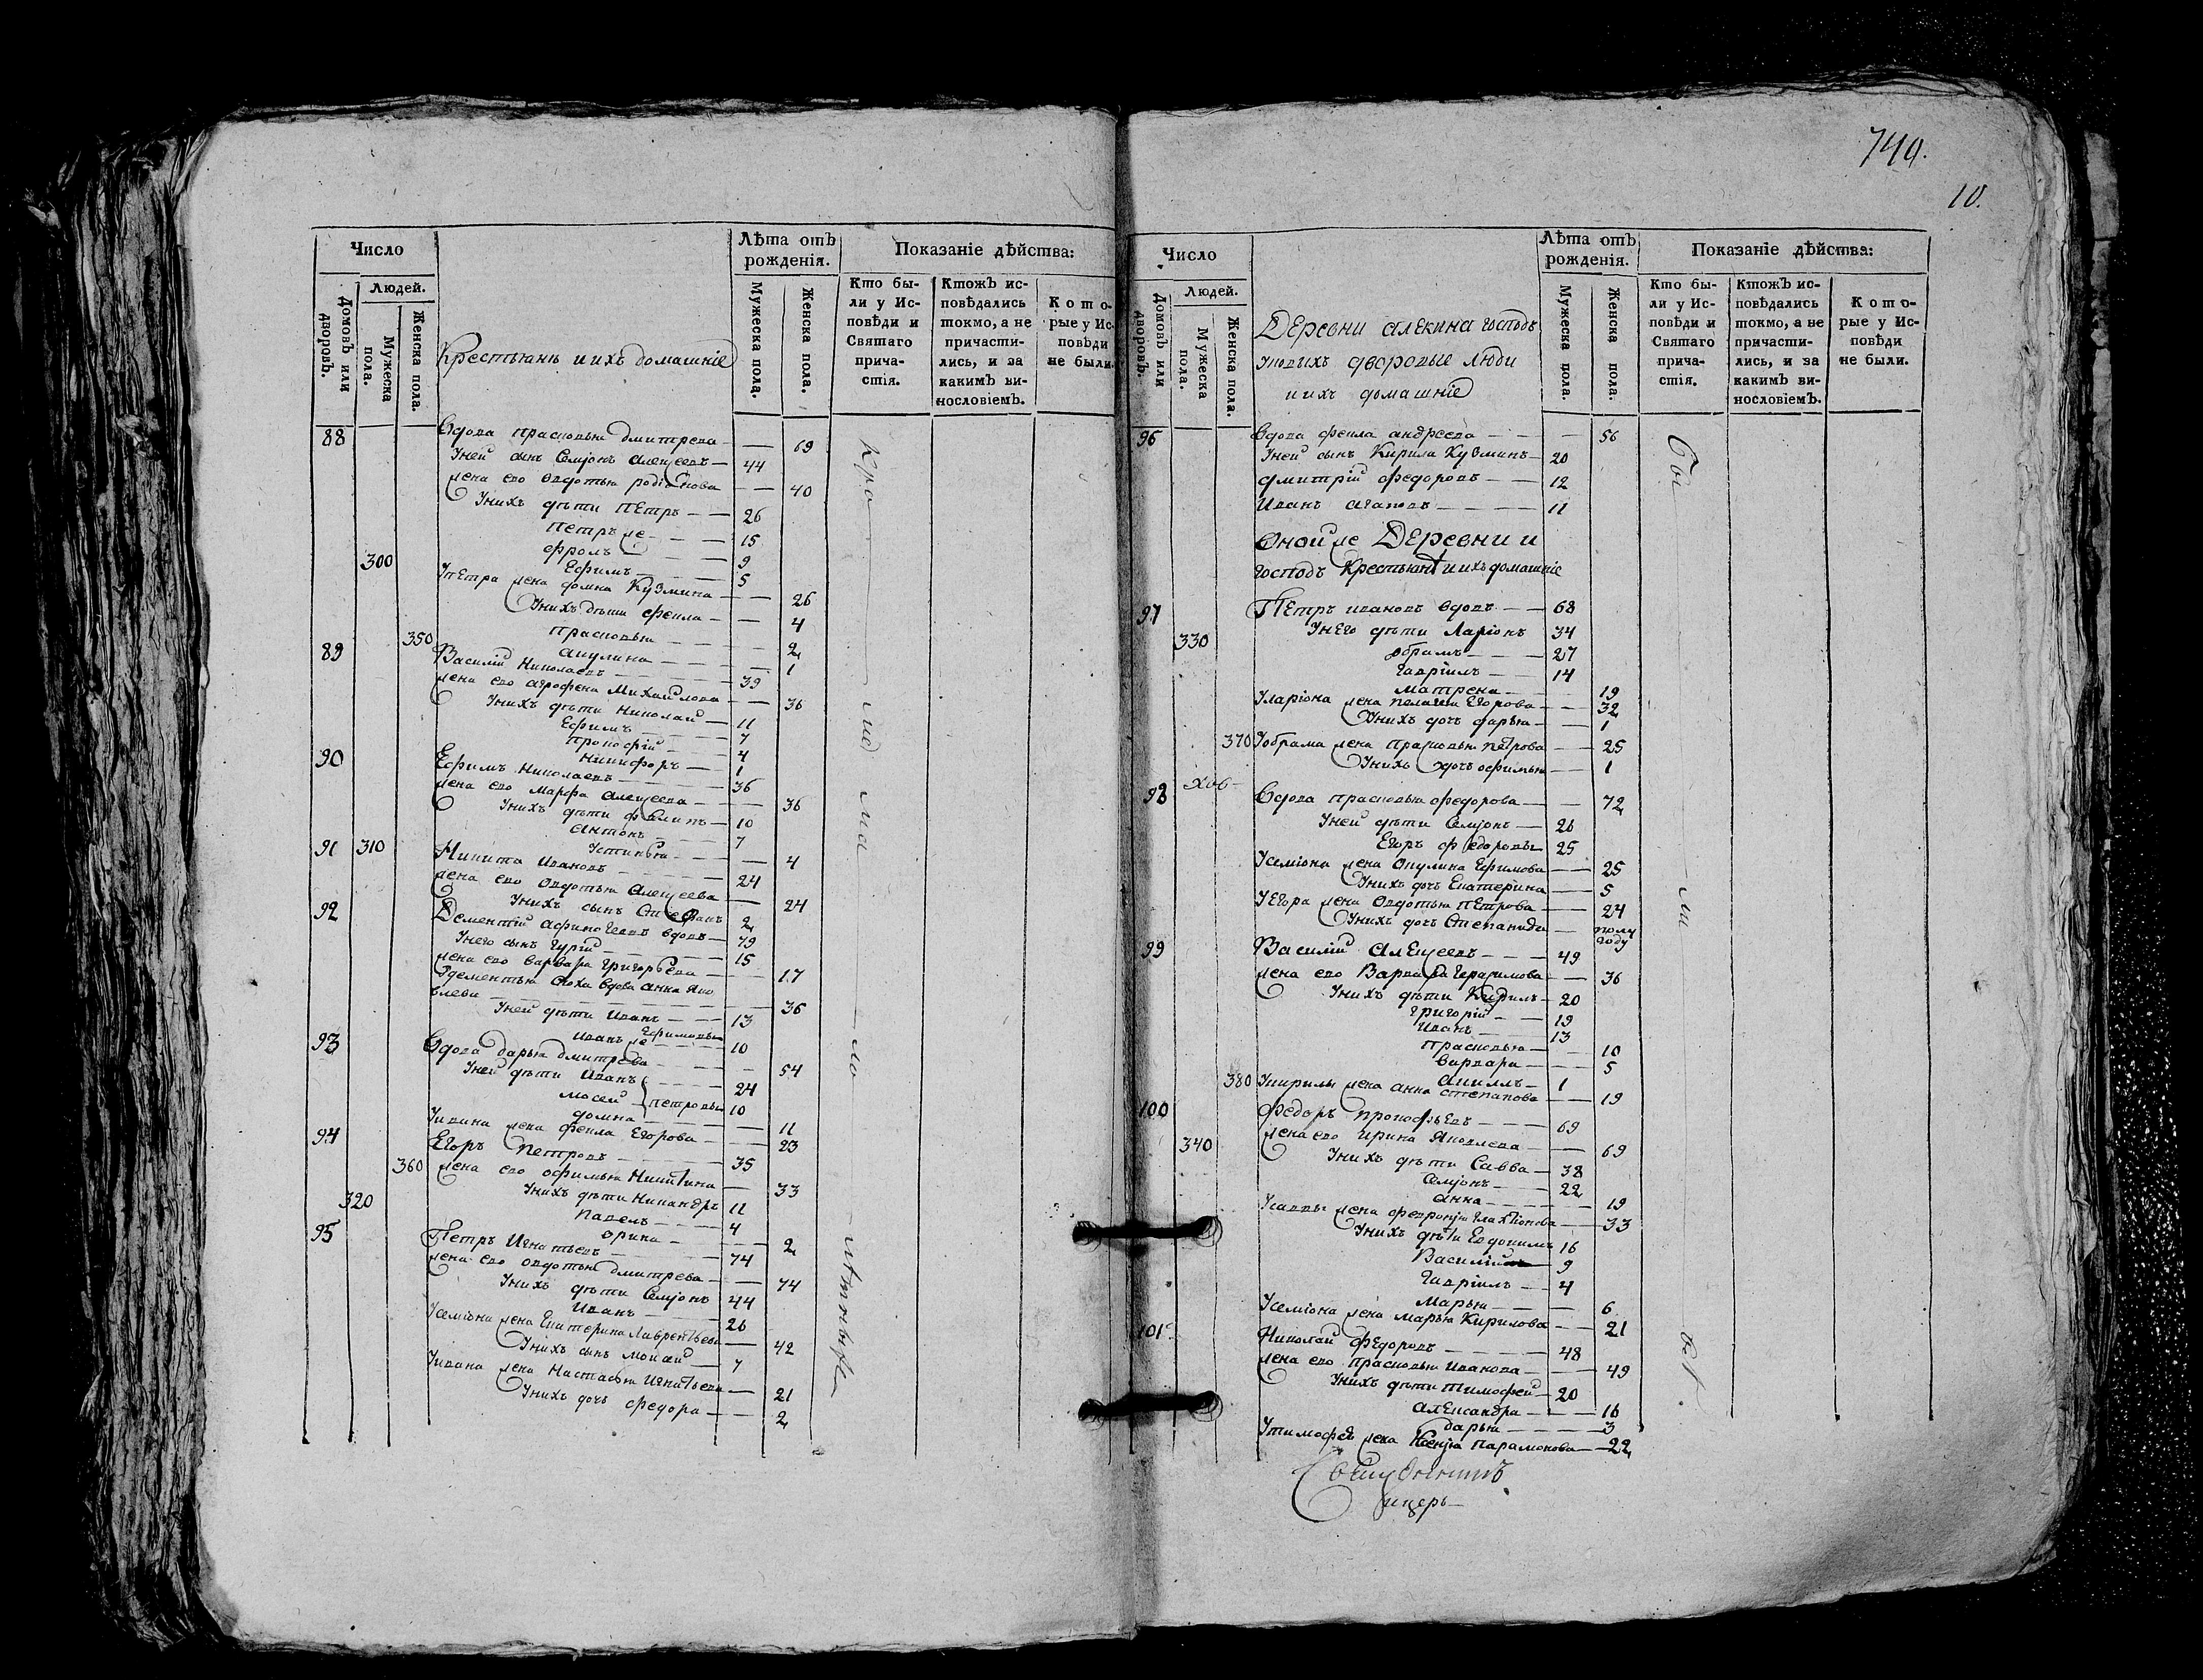 Число
Людей.
Домовъ или дворовъ.
Мужеска пола.
Женска пола.
Крестьянъ и ихъ домашніе
Лѣта отъ рожденія.
Мужеска пола.
Женска пола.
Показаніе дѣйства:
Кто были у Исповѣди и Святаго причастія.
Ктожъ исповѣдались токмо, а не причастились, и за какимъ винословіемъ.
Которые у Исповѣди не были.
88 Вдова прасковья дмитрева — 69
Уней сынъ Семіонъ Алексеевъ — 44
жена ево Овдотья родіонова — 40
Унихъ дѣти пЕтръ — 26
петръ же — 15
фролъ — 9
300 Ефимъ — 5
Упетра жена домна Кузмина — 26
Унихъ дѣти фекла — 4
прасковья — 2
350 акулина — 1
89 Василій Николаевъ — 39
жена ево агрофена Михайлова — 36
Унихъ дѣти Николай — 11
Ефимъ — 7
прокофій — 4
Никифоръ — 1
90 Ефимъ Николаевъ — 36
жена ево Марфа алексеева — 36
Унихъ дѣти филипъ — 10
антонъ — 7
Устинья — 4
91 310 Никита Ивановъ — 24
жена ево Овдотья Алексеева — 24
Унихъ сынъ Стефанъ 2
92 Дементій афиногеевъ вдовъ — 79
Унего сынъ Гурій — 15
жена ево варвара григорьева — 17
Удементья сноха вдова анна яковлева — 36
Уней дѣти Иванъ — 13
Иванъ же Ефимовы 10
93 Вдова дарья дмитрева — 54
Уней дѣти Иванъ — 24
мосей петровы 10
домна — 11
Уивана жена фекла Егорова — 23
94 Егоръ Петровъ — 35
360 жена ево офимья Никитина — 33
Унихъ дѣти Никандръ 11
320 павелъ — 4
орина — 2
95 Петръ Игнатьевъ — 74
жена ево овдотья дмитрева — 74
Унихъ дѣти Семіонъ 44
Иванъ — 26
Усеміона жена Екатерина Лаврентьева — 42
Унихъ сынъ мокий — 7
Уивана жена Настасья Игнатьева — 21
Унихъ дочь федора — 2
740.
10.
Число
Людей.
Домовъ или дворовъ.
Мужеска пола.
Женска пола.
Деревни алекина господъ
дворовые люди
и ихъ домашніе
Лѣта отъ рожденія.
Мужеска пола.
Женска пола.
Показаніе дѣйства:
Кто были у Исповѣди и Святаго причастія.
Ктожъ исповѣдались токмо, а не причастились, и за какимъ винословіемъ.
Которые у Исповѣди не были.
96 Вдова фекла андреева — 56
Уней сынъ Кирила Кузминъ — 20
дмитрій федоровъ — 12
Иванъ агаповъ — 11
Оной же Деревни и
господъ Крестьянъ и ихъ домашніе
97 Петръ ивановъ вдовъ — 68
330 Унего дѣти Ларіонъ 34
обрамъ — 27
гавріилъ — 14
матрена — 19
Уларіона жена пелагия Егорова — 32
Унихъ дочь дарья — 1
370 Уобрама жена прасковья петрова — 25
Унихъ дочь офимья — 1
98 Вдова прасковья федорова — 72
Уней дѣти Семіонъ — 26
Егоръ федоровы 25
Усеміона жена Окулина Ефимова — 25
Унихъ дочь Екатерина — 5
УЕгора жена Овдотья пЕтрова — 24
Унихъ дочь Степанида — полу году
99 Василій Алексеевъ — 49
жена ево Варвара Герасимова — 36
Унихъ дѣти Кирилъ — 20
григорій — 19
Иванъ — 13
прасковья — 10
варвара — 5
акилъ — 1
380 Укирилы жена анна степанова — 19
100 Федоръ прокофьевъ — 69
340 жена ево ирина Яковлева — 69
Унихъ дѣти Савва — 38
Семіонъ — 22
анна — 19
Усаввы жена февронія Галахтіонова — 33
Унихъ дѣти Евдокимъ 16
Василій — 9
гавріилъ — 4
Марья — 6
Усеміона жена марья Кирилова — 21
101 Николай Федоровъ — 48
жена ево прасковья Иванова — 49
Унихъ дѣти тимофей — 20
александра — 16
дарья — 3
Утимофея жена Ксенія парамонова — 22